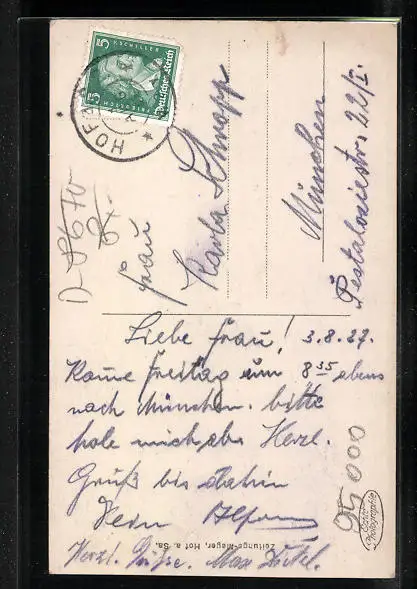 5 F. SCHILLER
5 FRIEDRICH
Deutsches Reich
HOF
D-8670
Frau
Karla Schrapp
München
Pestalozzistr. 22/I.
Liebe Frau! 3.8.27.
Kome Freitag um 8 35 abens
nach München. bitte
hole mich ab. Herzl.
Gruß bis dahin
Dein Alfons
Herzl. Grüße. Max
95 000
Echte Photographie
Zeitungs-Meyer, Hof a. Sa.